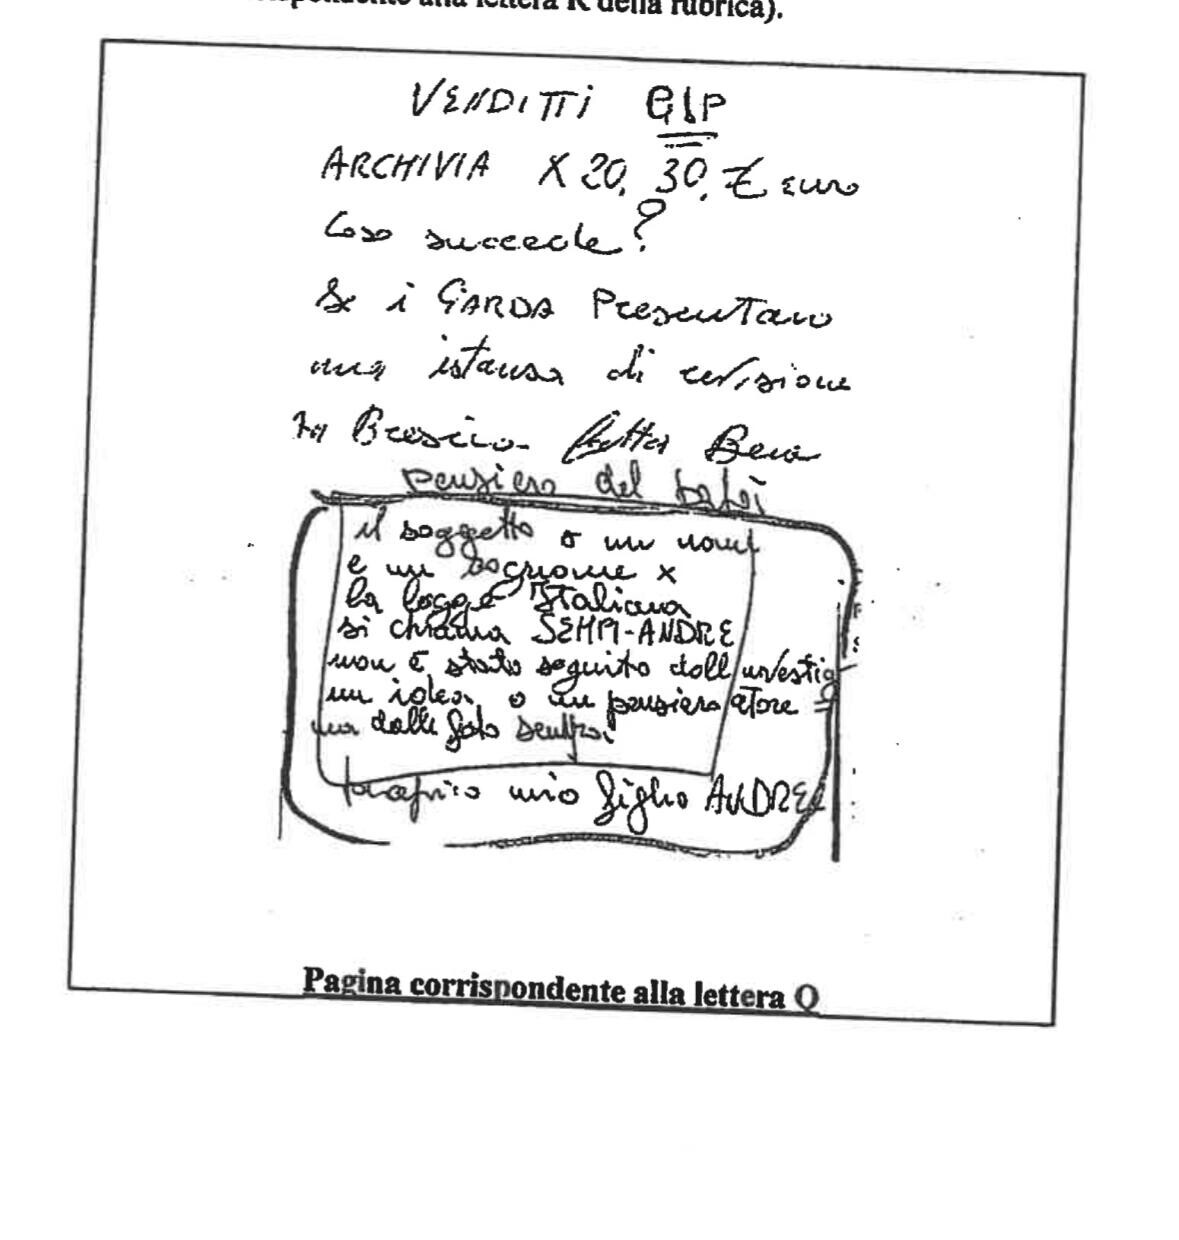 corrispondente alla lettera R della rubrica).
VENDITTI GIP
ARCHIVIA X 20. 30. € euro
Cosa succede?
Se i GARDA Presentano
una istansa di revisione
Brescia Bene
pensiero del
il soggetto a un nome
e un cognome x
la legge Italiana
si chiama SEMPI-ANDRE
non è stato seguito dall investig
un idea o un pensiero atore
ma dalle foto sembra
mio figlio ANDREA
Pagina corrispondente alla lettera Q